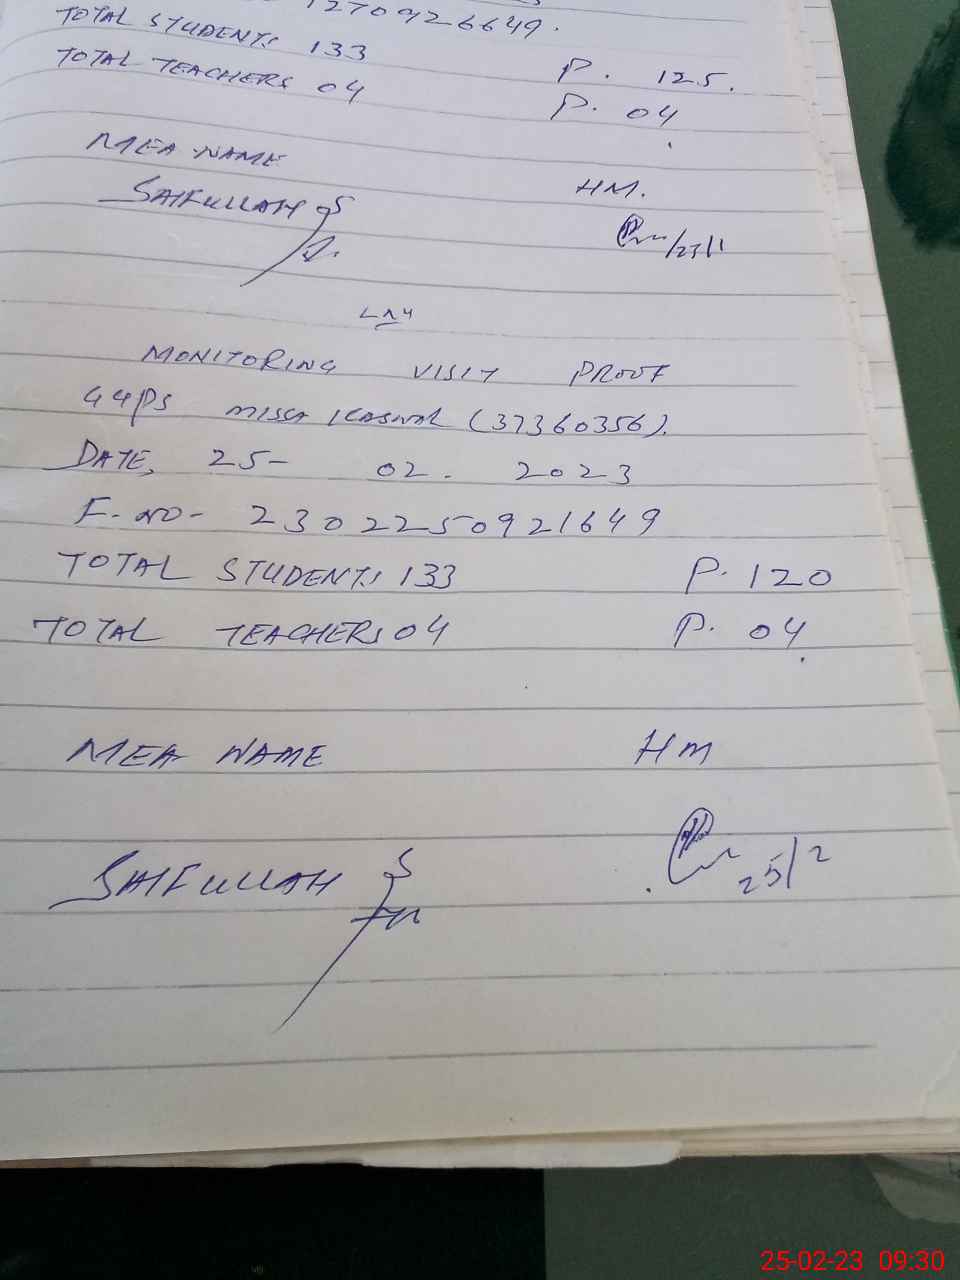 1270926649.
TOTAL STUDENTS 133 P. 125.
TOTAL TEACHERS 04 P. 04
MEA NAME HM.
SAIFULLAH
LND
MONITORING VISIT PROOF
GGPS MISSA KASWAL (37360356).
DATE, 25- 02. 2023
F-NO- 2302250921649
TOTAL STUDENTS 133 P. 120
TOTAL TEACHERS 04 P. 04
MEA NAME HM
SAIFULLAH 25/2
25-02-23 09:30